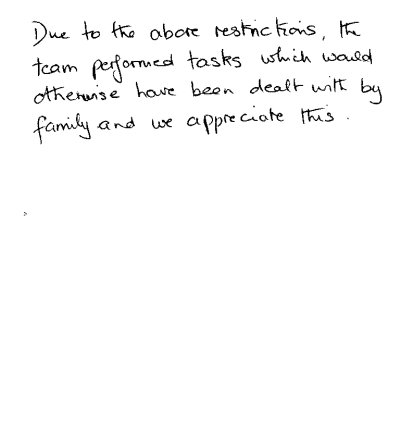 Due to the above restrictions, the
team performed tasks which would
otherwise have been dealt with by
family and we appreciate this.